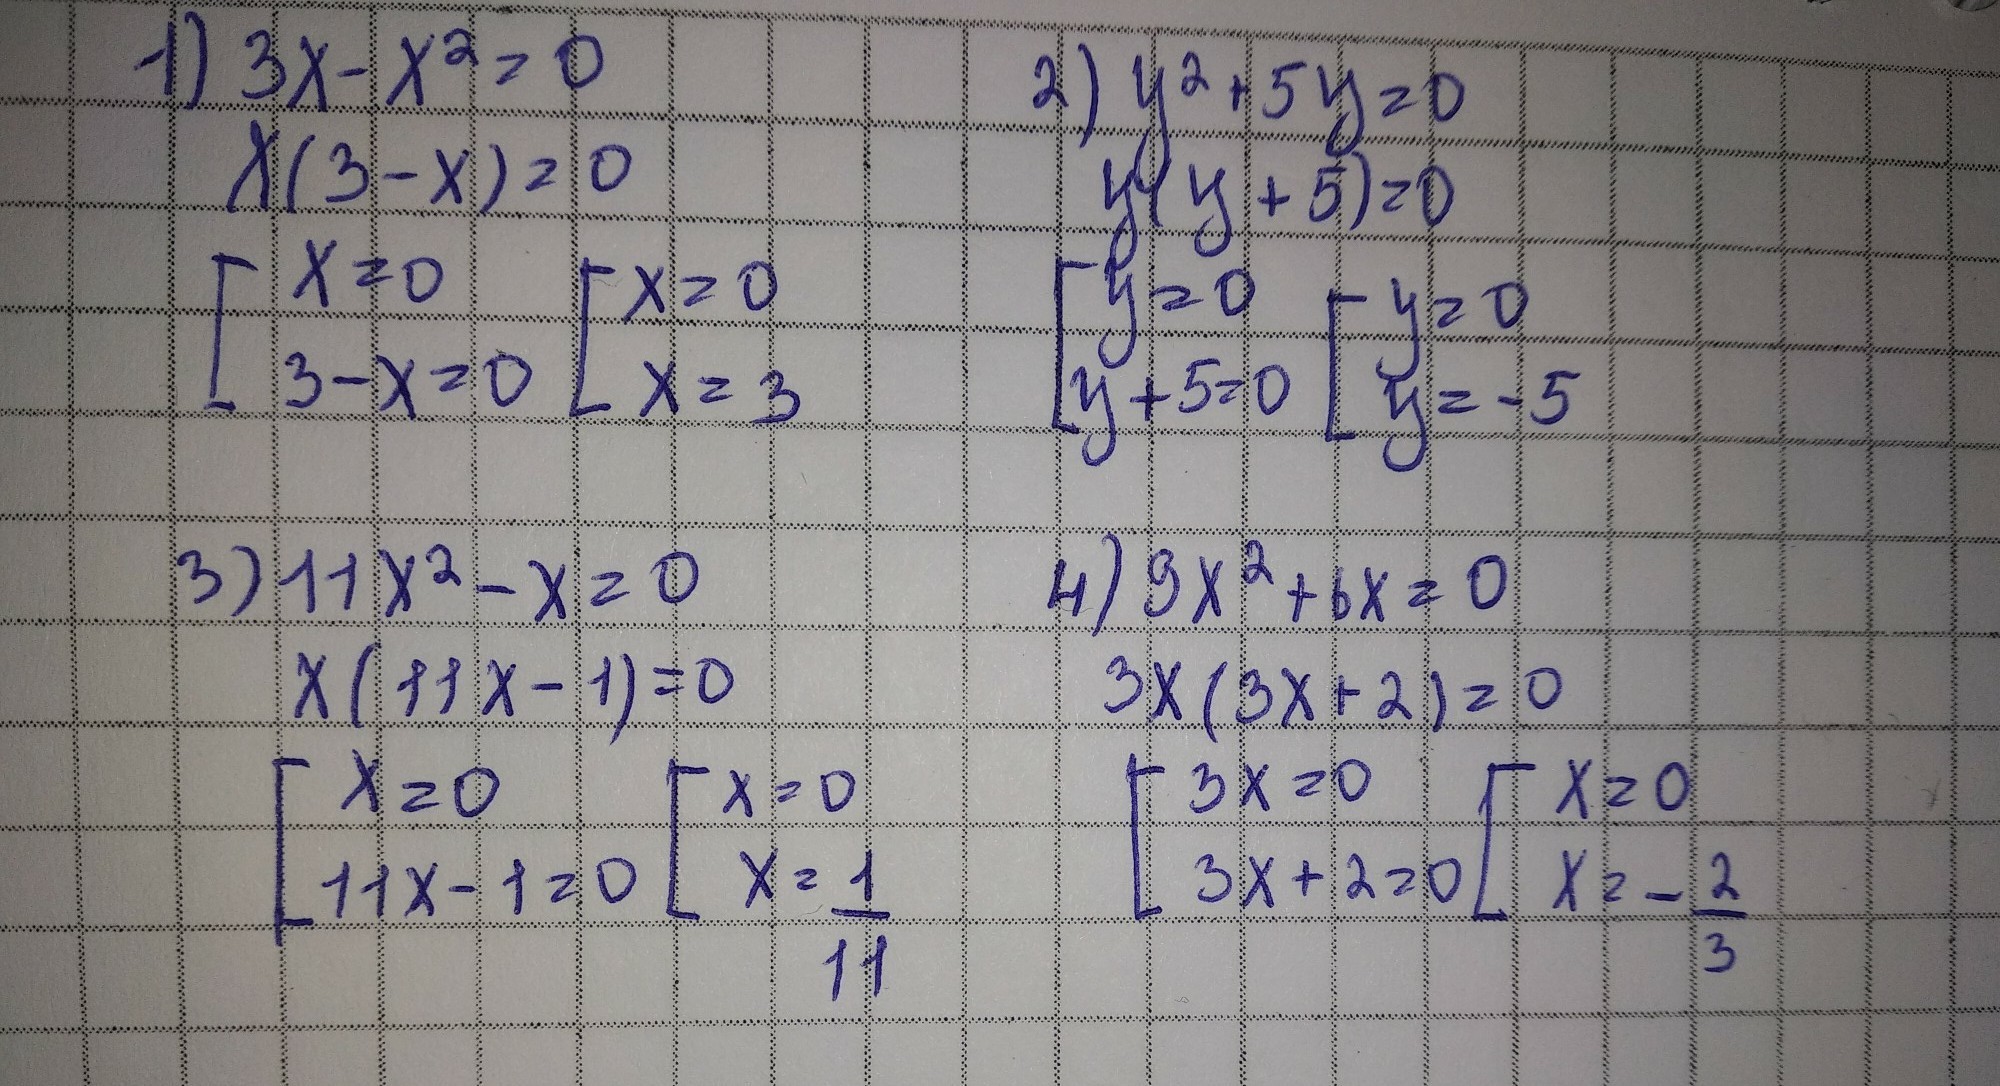 1) 3x - x² = 0
x(3 - x) = 0
[ x = 0 [ x = 0
3 - x = 0 x = 3
2) y² + 5y = 0
y(y + 5) = 0
[ y = 0 [ y = 0
y + 5 = 0 y = -5
3) 11x² - x = 0
x(11x - 1) = 0
[ x = 0 [ x = 0
11x - 1 = 0 x = 1/11
4) 9x² + 6x = 0
3x(3x + 2) = 0
[ 3x = 0 [ x = 0
3x + 2 = 0 x = - 2/3